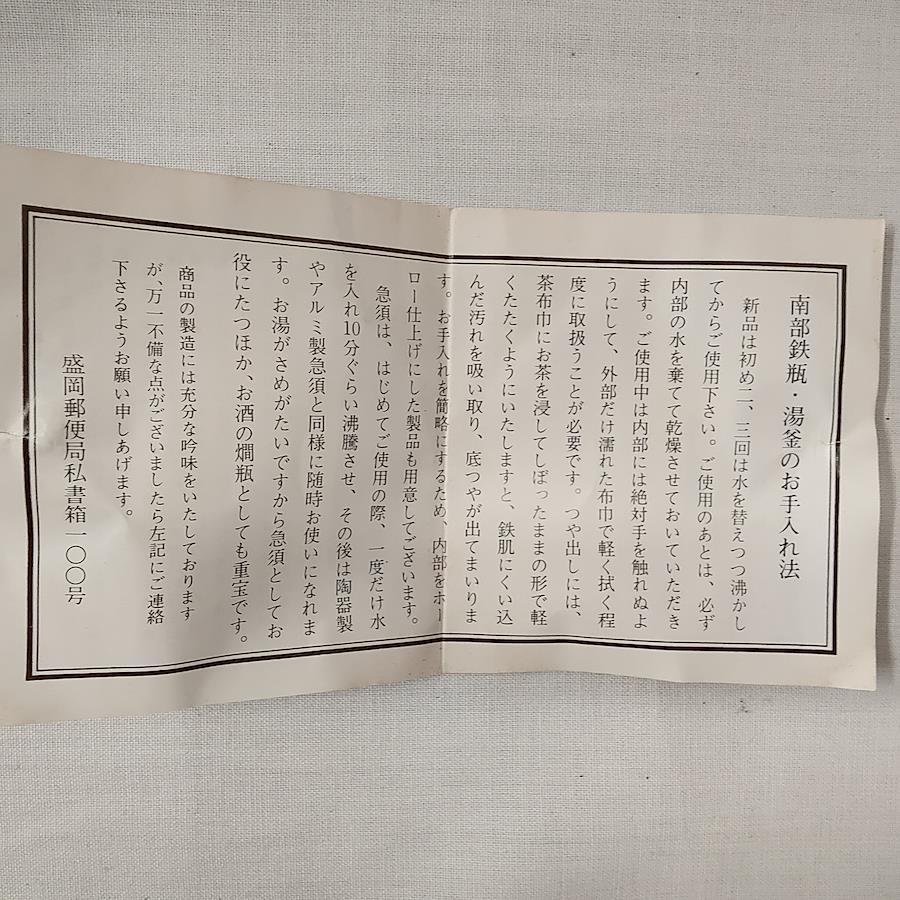 南部鉄瓶・湯釜のお手入れ法
新品は初め二、三回は水を替えつつ沸かし
てからご使用下さい。ご使用のあとは、必ず
内部の水を棄てて乾燥させておいていただき
ます。ご使用中は内部には絶対手を触れぬよ
うにして、外部だけ濡れた布巾で軽く拭く程
度に取扱うことが必要です。つや出しには、
茶布巾にお茶を浸してしぼったままの形で軽
くたたくようにいたしますと、鉄肌にくい込
んだ汚れを吸い取り、底つやが出てまいりま
す。お手入れを簡略にするため、内部をホー
ロー仕上げにした製品も用意してございます。
急須は、はじめてご使用の際、一度だけ水
を入れ10分ぐらい沸騰させ、その後は陶器製
やアルミ製急須と同様に随時お使いになれま
す。お湯がさめがたいですから急須としてお
役にたつほか、お酒の燗瓶としても重宝です。
商品の製造には充分な吟味をいたしております
が、万一不備な点がございましたら左記にご連絡
下さるようお願い申しあげます。
盛岡郵便局私書箱一〇〇号